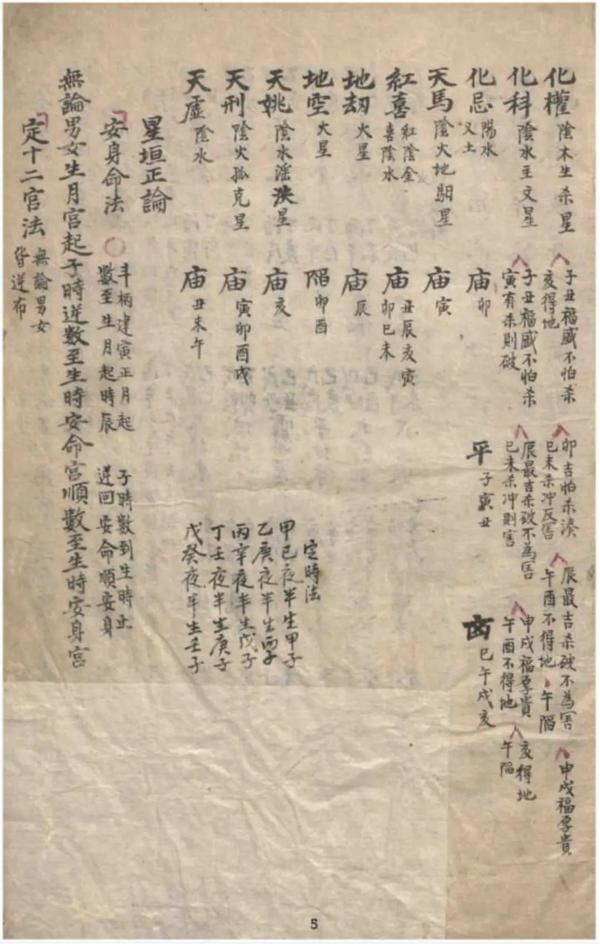 化權 陰木生杀星 子丑福盛不怕杀 亥得地 卯吉怕杀湊 巳未杀冲反害 辰最吉杀破不為害 午酉不得地、午陷 申戌福厚貴
化科 陰水主文星 子丑福盛不怕杀 寅有杀則破 辰最吉杀破不為害 巳未杀冲則害 申戌福厚貴 午酉不得地 亥得地 午陷
化忌 陽水 又土 庙 卯 平 子寅丑 巳午戌亥
天馬 陰火地馹星 庙 寅
紅喜 紅陰金 喜陰水 庙 丑辰亥寅 卯巳未
地劫 火星 庙 辰
地空 火星 陷 卯酉
天姚 陰水滛泆星 庙 亥
天刑 陰火孤克星 庙 寅卯酉戌
天虛 陰水 庙 丑未午
定時法
甲己夜半生甲子
乙庚夜半生丙子
丙辛夜半生戊子
丁壬夜半生庚子
戊癸夜半生壬子
星垣正論
安身命法 ○ 斗柄建寅正月起 子時數到生時止
數至生月起時辰 逆回安命順安身
無論男女生月宮起子時逆數至生時安命宮順數至生時安身宮
定十二宮法 無論男女
皆逆布
5